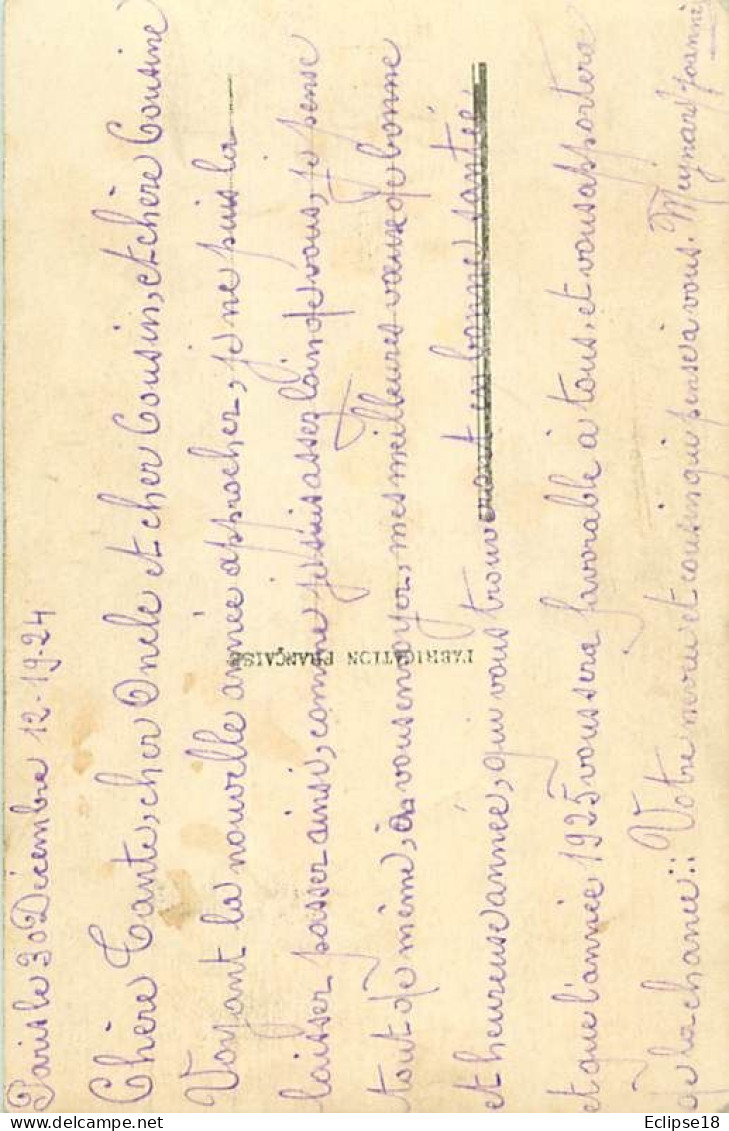 Paris le 30 Décembre 12-19-24
Chère Tante, cher Oncle et cher Cousin, et chère Cousine
Voyant la nouvelle année approcher, je ne puis la
laisser passer ainsi, comme je suis assez loin de vous, je pense
tout de même, à vous envoyer, mes meilleures vœux de bonne
et heureuse année, qui vous trouveront en bonne santée.
et que l'année 1925 vous sera favorable à tous, et vous apportera
de la chance :: Votre neveu et cousin qui pense à vous. Meynard Joanni
FABRICATION FRANÇAISE
Eclipse18